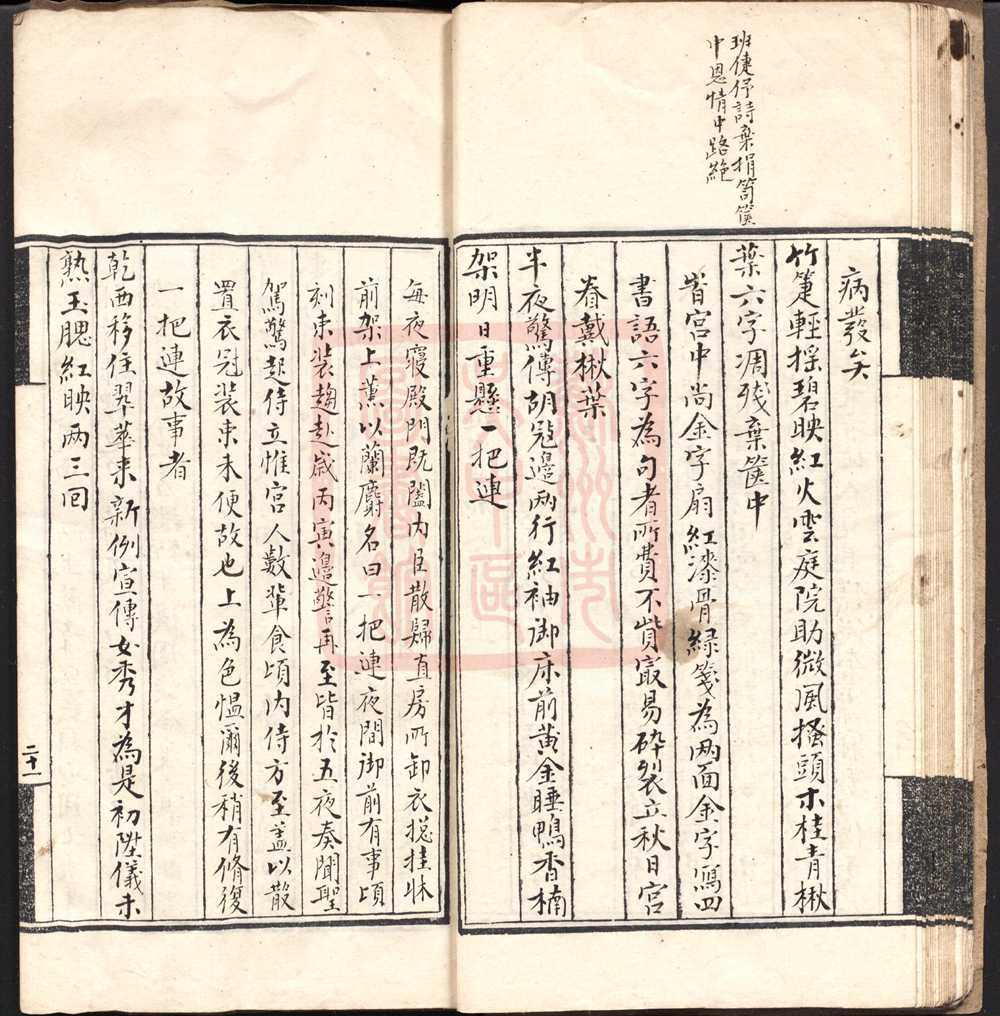 班倢伃詩棄捐笥篋
中恩情中路絶
病發矣
竹箑輕揺碧映紅火雲庭院助微風搔頭木桂青楸
葉六字凋殘棄篋中
啓宮中尚金字扇紅漆骨緑箋為兩面金字寫四
書語六字為句者所費不貲㝡易碎裂立秋日宮
眷戴楸葉
半夜驚傳胡冦邉兩行紅袖御床前黄金睡鴨香楠
架明日重懸一把連
每夜寢殿門既闔内臣散歸直房所卸衣揔挂牀
前架上薫以蘭麝名曰一把連夜間御前有事頃
刻束装趨赴歲丙寅邉警再至皆於五夜奏聞聖
駕驚起侍立惟宮人數輩食頃内侍方至盖以散
置衣冠装束未便故也上為色愠爾後稍有脩復
一把連故事者
乾西移住翠華来新例宣傳女秀才為是初陞儀未
熟玉腮紅映兩三回
二十一